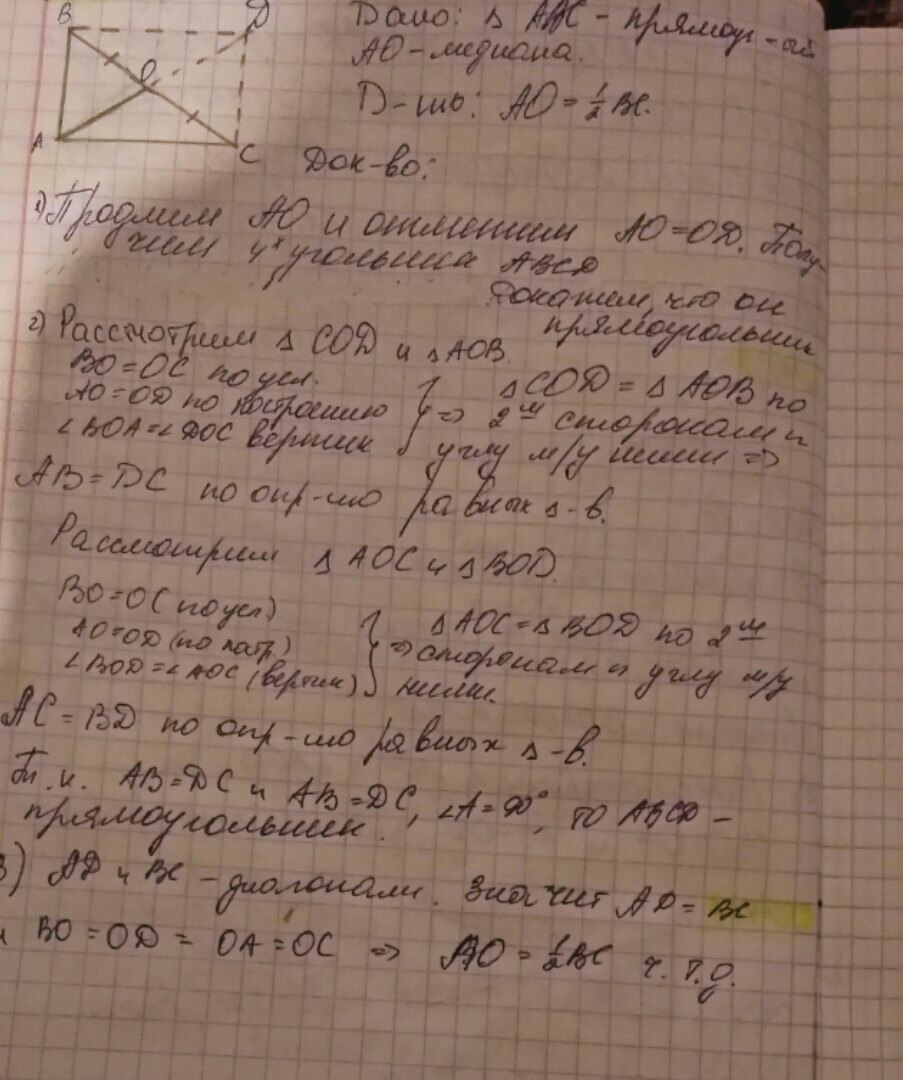 B
D
O
A
C
Дано: Δ ABC - прямоуг-ый
AO-медиана.
Д-ть: AO = 1/2 BC.
Док-во:
1) Продлим AO и отметим AO=OD. Полу-
чим 4х угольник ABCD
Докажем, что он
прямоугольник
2) Рассмотрим Δ COD и Δ AOB
BO=OC по усл.
AO=OD по построению
∠BOA=∠DOC вертик
} => Δ COD = Δ AOB по
2ум сторонам и
углу м/у ними =>
AB=DC по опр-ию равных Δ-в.
Рассмотрим Δ AOC и Δ BOD.
BO=OC (по усл)
AO=OD (по)
∠BOD=∠AOC (вертик)
} => Δ AOC = Δ BOD по 2ум
сторонам и углу м/у
ними.
AC = BD по опр-ию равных Δ-в.
Т.к. AB=DC и AB=DC, ∠A=90°, то ABCD -
прямоугольник.
3) AD и BC - диагонали. Значит AD = BC
и BO = OD = OA = OC => AO = 1/2 BC ч.т.д.